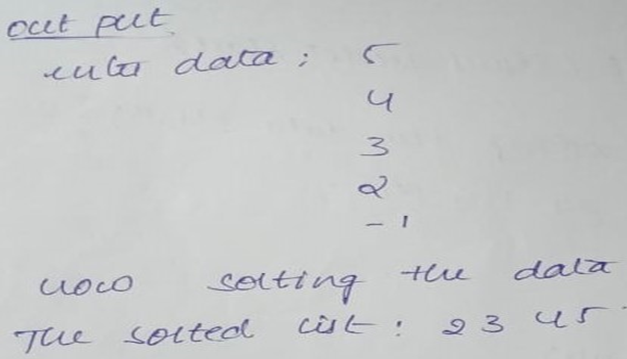 out put
enter data : 5
4
3
2
- 1
now sorting the data
The sorted list : 2 3 4 5